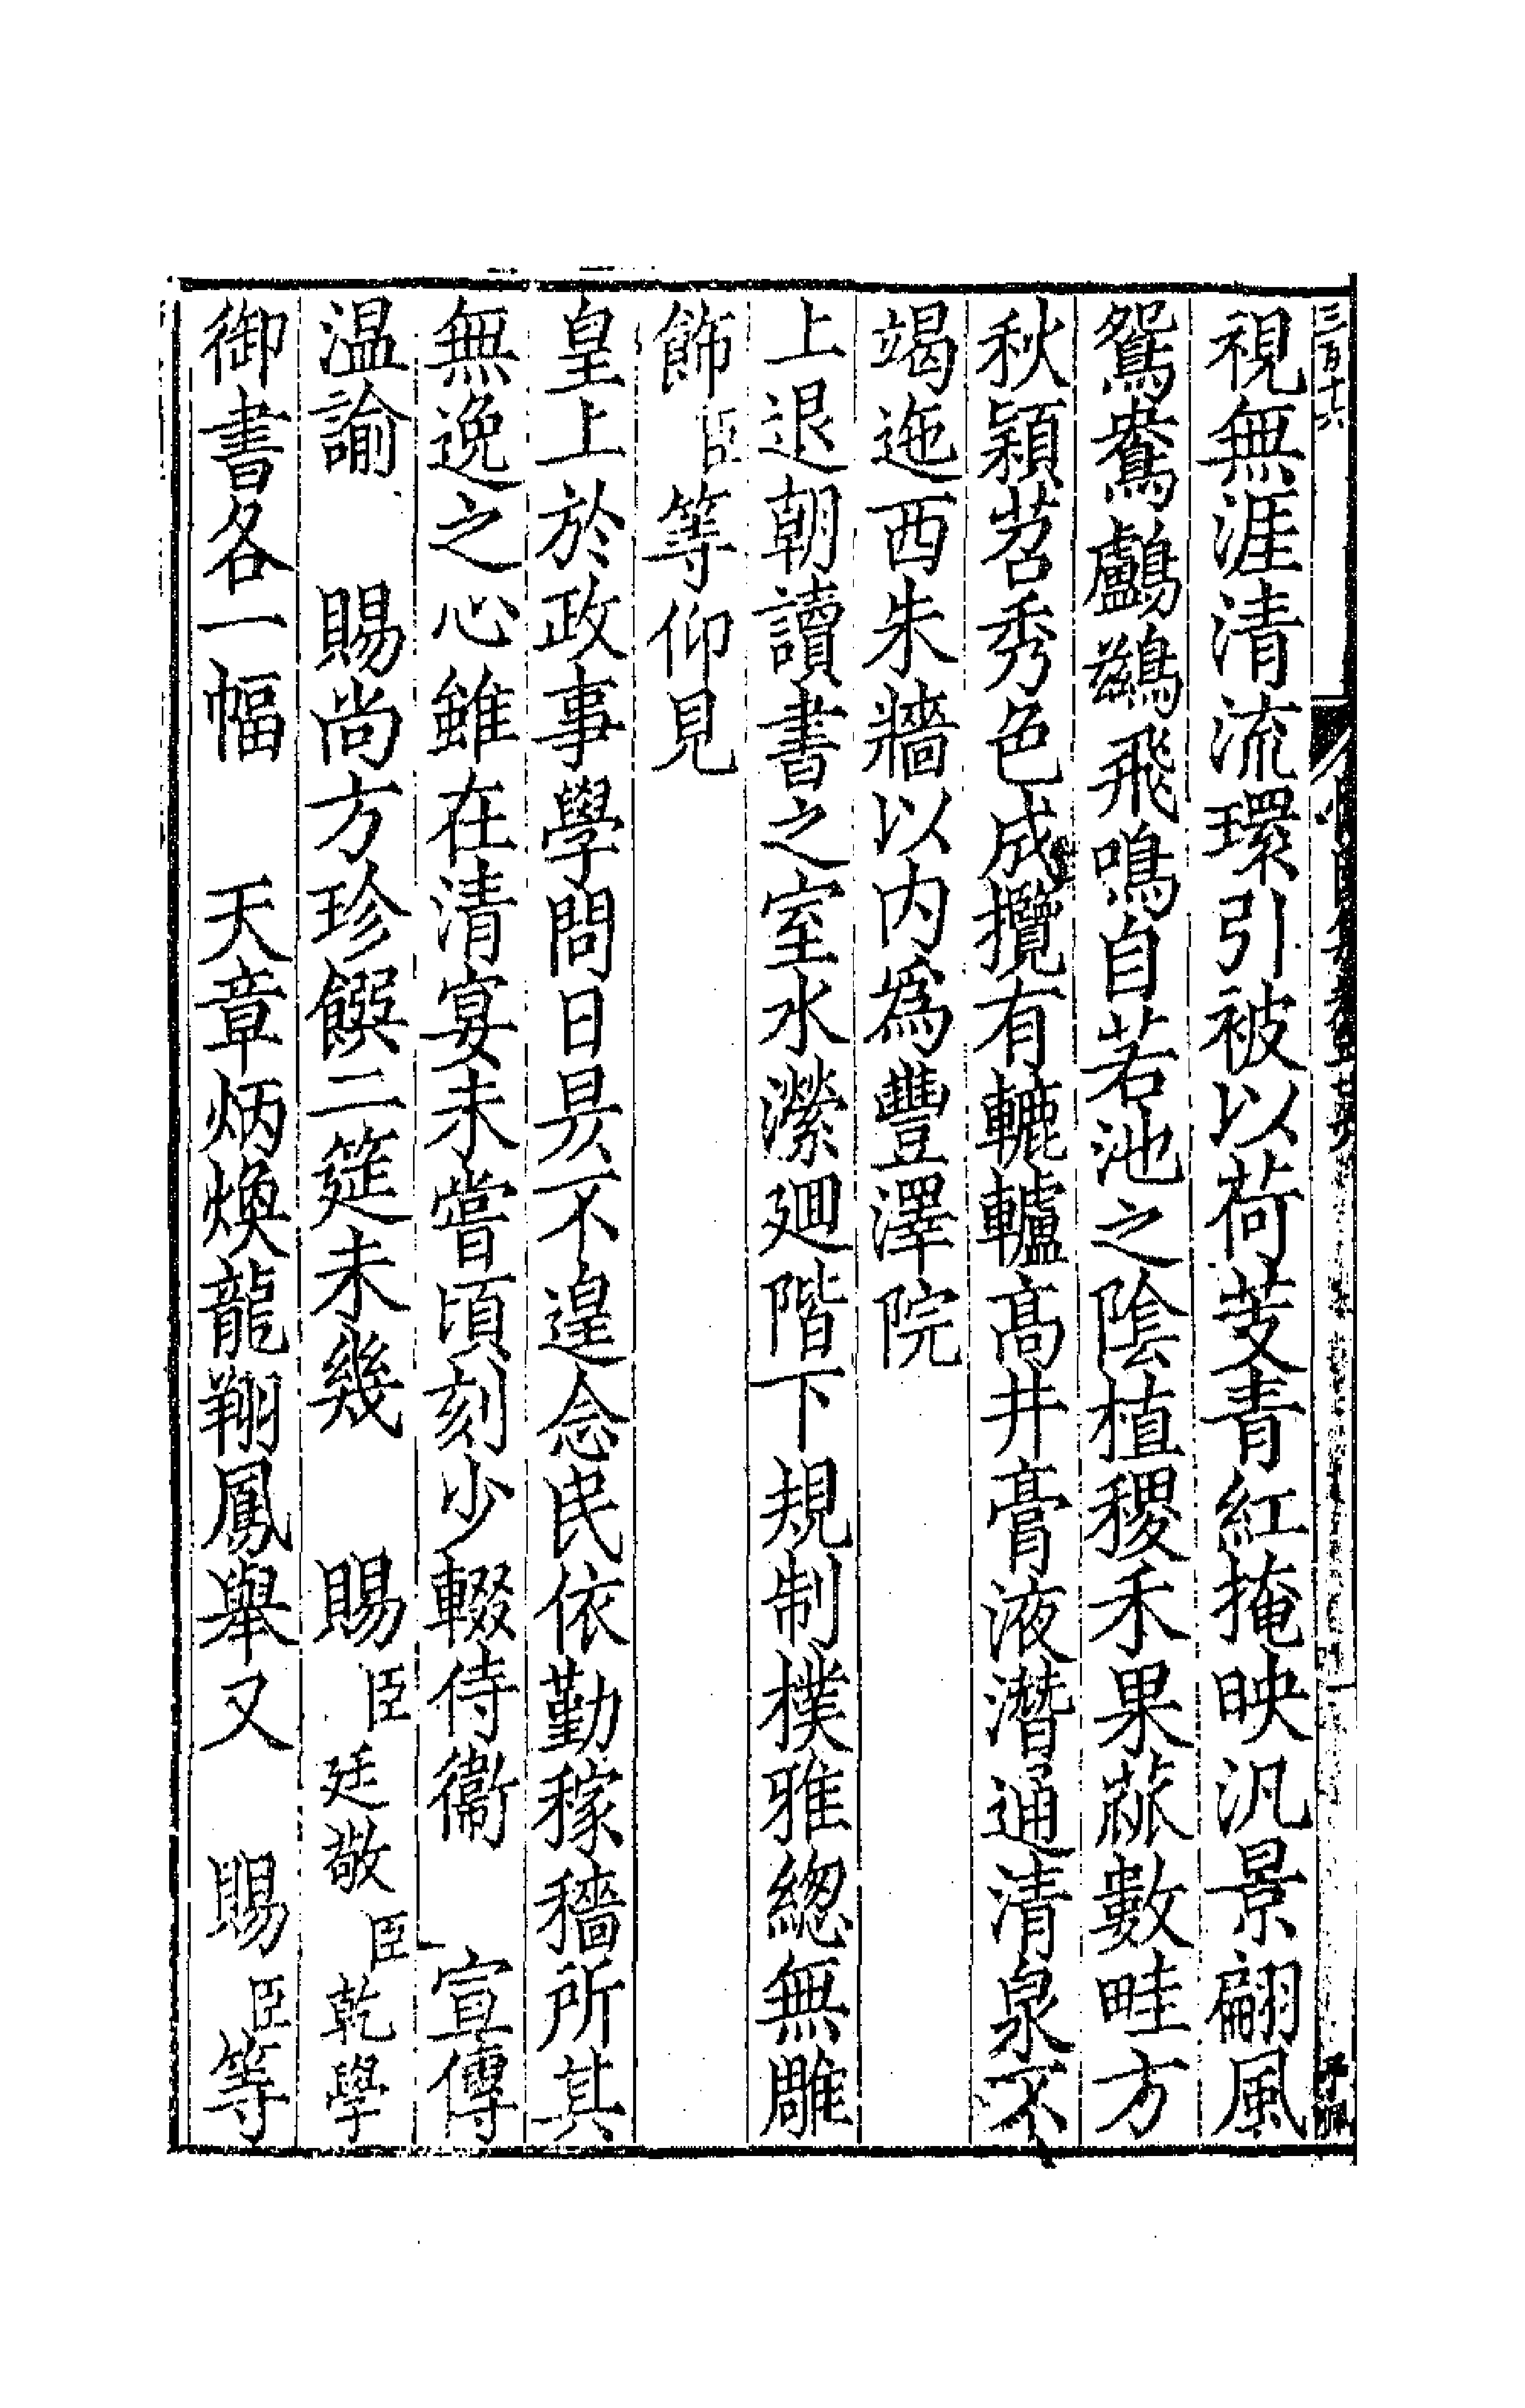 三百十六
視無涯清流環引被以荷芰青紅掩映汎景翩風
鴛鴦鸕鷀飛鳴自若池之陰植稷禾果蓏數畦方
秋穎苕秀色成攬有轆轤高井膏液潛通清泉不
竭迤西朱牆以内為豐澤院
上退朝讀書之室水瀠廻階下規制樸雅緫無雕
飾臣等仰見
皇上於政事學問日昃不遑念民依勤稼穡所其
無逸之心雖在清宴未嘗頃刻少輟侍衞 宣傳
温諭 賜尚方珍饌二筵未幾 賜臣廷敬臣乾學
御書各一幅 天章炳煥龍翔鳳舉又 賜臣等